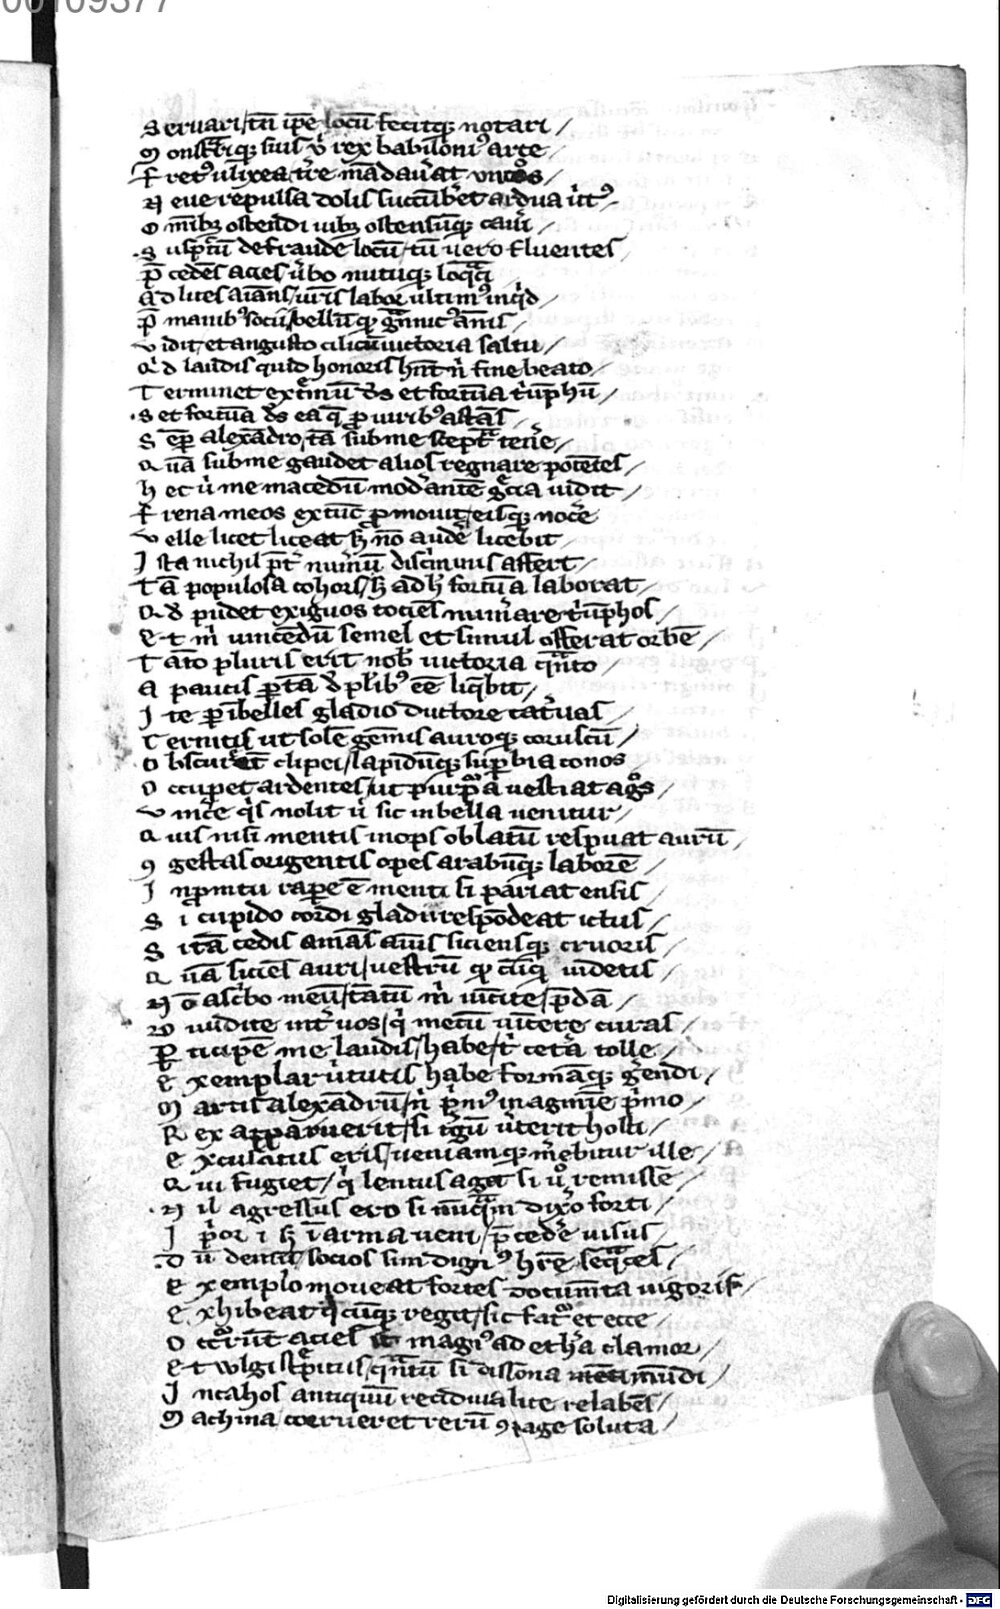 00109377
Servari / tm̄ ip̄e locū fecitq; notari /
Monstriq; suis ṽ rex babiloniꝰ arte /
Fretꝰ ulixea / tr̄e mādaṽat uncos /
Neve repulsa dolis succūbēt ardua ṽtꝰ /
Omībꝫ ostendi iubꝫ ostensūq; cavi /
Suspc̄tū defraude locū / tū vero fluentes /
P̄cedēs acies ṽbo nutuq; loq̄q̄
Ad lites aīans / uris labor ultimꝰ inq̄d /
P̄ manibꝰ socii / bellūq;
Vidit / et angusto cilicū uictoria saltu /
Qd̄ laudis quid honoris hn̄t ñ fine beato /
Terminet extm̄ū ds̄ et fortūa t̃ūphū /
Set fortūa ds̄ ea q̄ p̱ uiribꝰ astās /
Sēp̱ alexādro / tā sub me sceptͣ tenēre /
Quā sub me gaudet alios regnare potētes /
Hec ũ me macedū moďantē grecia uidit /
Frena meos extūc p̱movit / eisq; nocē
Velle licet liceat sꝫ nō audē licebit /
Ista nichil p̄t̃ nūm̄ū discīīnis affert /
Tā populosa cohors / sꝫ adhͨ fortūa laborat /
Qd̄ pudet exiguos tociēs num̃are t̃ūphos /
Et m̃ vincēdū semel et simul offerat orbē /
Tāto pluris erit nob̃ uictoria q̄nto /
A paucis p̱tā d̄ pl̃ibꝰ eē liq̄bit /
Ite p̱ ībelles gladio ductore cat̃uas /
Cernitis ut solē gēmis auroq; coruscū /
Obscurēt clipei / lapidūq; sup̱bia conos
Occupet ardentes / ut purp̱a uestiat agͦs /
Vīcẽ q̃s nolit ũ sic inbella uenitur /
Quis nisi mentis inops oblatū respuat aurū /
ꝯgestas origentis opes arabūq; laborē /
Inpromtu rap̱e ē menti si pariat ensis /
Si cupido cordi gladii respōdeat ictus /
Si tā cedis amās auris siciensq; cruoris /
Quā siciēs auri / uestrū q; cūq; uidetis /
Nō asc̃bo meū / tātū m̃ uincite / p̄dā /
Diuidite int̃ uos / q̃ mecū uīcere curas /
P̱ticipē me laudis / habe / t̃ cetā tolle /
Exemplar ũtutis habe formāq; g̃endi /
Martis alexādrū / ñ p̃mꝰ in agmīe p̃mo /
Rex apparuerit / si t̃gū ũterit hosti /
Exculatus eris / ueniamq; m̃ebitur ille /
Qui fugiet / q̃ lentus aget si uͦ remissē /
Nil agressus ero si nūq̄m dixͦo forti /
I p̃or i sꝫ ī arma ueni / p̄cedē uisus /
Dū dentur / socios sim dignꝰ hr̄e seq̄ces /
Exemplo moueat fortes documta uigoris /
Exhibeat q̄cūq; regit / sic fatͣ et ecce /
Occr̃rūt acies it magiꝰ ad eth̃a clamor /
Et wlgi strepitus / q̄ntū si dissona mundi /
In cahos antiquū recidiua lite relabēs /
Machina / coerueret rerū ꝯpage soluta /
Digitalisierung gefördert durch die Deutsche Forschungsgemeinschaft - DFG